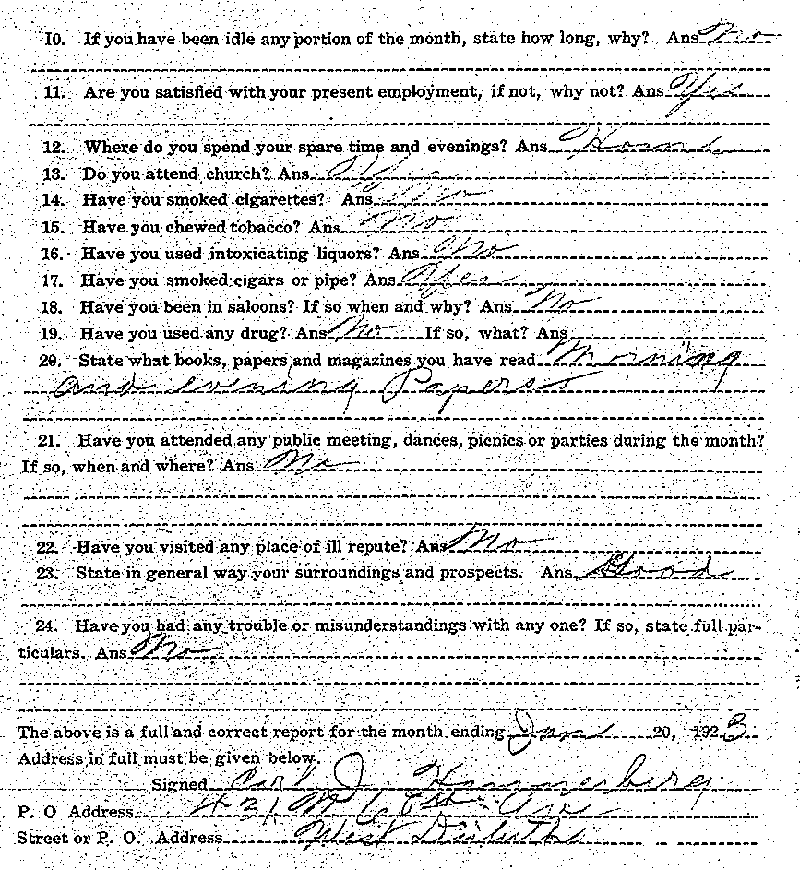 10. If you have been idle any portion of the month, state how long, why? Ans No
11. Are you satisfied with your present employment, if not, why not? Ans Yes
12. Where do you spend your spare time and evenings? Ans Home
13. Do you attend church? Ans Yes
14. Have you smoked cigarettes? Ans No
15. Have you chewed tobacco? Ans No
16. Have you used intoxicating liquors? Ans No
17. Have you smoked cigars or pipe? Ans Yes
18. Have you been in saloons? If so when and why? Ans No
19. Have you used any drug? Ans No If so, what? Ans
20. State what books, papers and magazines you have read Morning
and evening Papers
21. Have you attended any public meeting, dances, picnics or parties during the month?
If so, when and where? Ans No
22. Have you visited any place of ill repute? Ans No
23. State in general way your surroundings and prospects. Ans Good
24. Have you had any trouble or misunderstandings with any one? If so, state full par-
ticulars. Ans No
The above is a full and correct report for the month ending 20, 1923
Address in full must be given below.
Signed Carl J
P. O Address 421 N Ave
Street or P. O. Address West Duluth